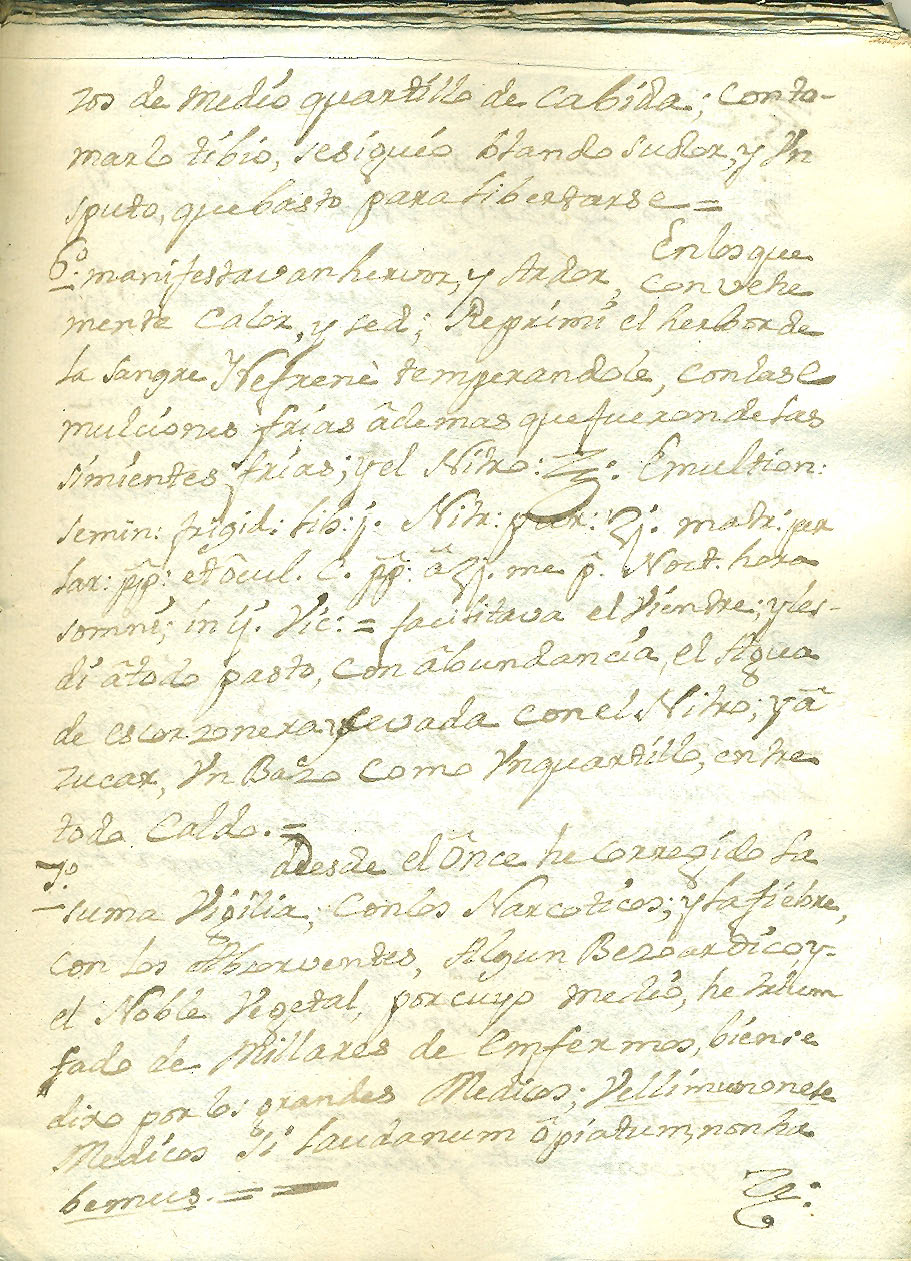 zos de medio quartillo de cabida; con to-
marlo tibio, se siguió stando sudor, y Vn
sputo, que basto para libertarse =
6.º En los que
manifestavan hervor, y Ardor, con vehe
mente Calor, y sed; Reprimi el herbor de
la sangre Y Nefrenè temperandole, con las e
mulciones frias âdemas que fueron de las
simientes frias; y el Nitro: Emultion:
semin: frigid: lib: j. Nitr: pur: ʒj. matr: per
lar: pp: et ôcul. C. pp: â ʒj. me p. Noct. hora
somni; in ij. Vic: = facilitava el Vientre; y les
di âtodo pasto, con âbundancia, el Agua
de escorzonera y sevada con el Nitro; y â
zucar, Vn Bazo como Vn quartillo, entre
todo Caldo. =
7.º desde el Ônce he corregido la
suma Vigilia; con los Narcoticos; y la fiebre,
con los Abzorventes, Algun Bezoardico y-
el Noble Vegetal, por cuyo medio, he trium
fado de Millares de emfermos, bien se
dixo por los grandes Medicos;
Medicos Si laudanum ôpiatum, non ha
bemus. = =